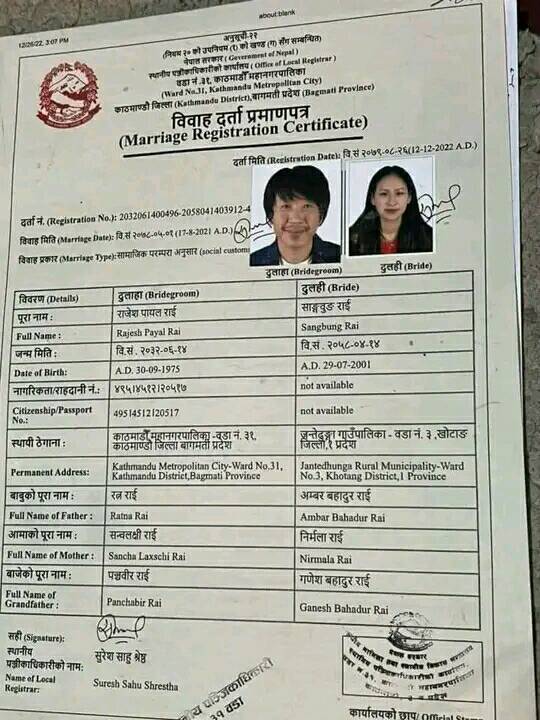 12/26/22, 3:07 PM
about:blank
अनुसूची-११
(नियम २० को उपनियम (१) को खण्ड (ग) सँग सम्बन्धित)
नेपाल सरकार ( Government of Nepal )
स्थानीय पञ्जीकाधिकारीको कार्यालय ( Office of Local Registrar )
वडा नं. ३१, काठमाडौँ महानगरपालिका
(Ward No.31, Kathmandu Metropolitan City)
काठमाण्डौ जिल्ला (Kathmandu District),बागमती प्रदेश (Bagmati Province)
विवाह दर्ता प्रमाणपत्र
(Marriage Registration Certificate)
दर्ता मिति (Registration Date): वि.सं २०७९-०८-२६(12-12-2022 A.D.)
दर्ता नं. (Registration No.): 2032061400496-2058041403912-4
विवाह मिति (Marriage Date): वि.सं २०७८-०५-०१ (17-8-2021 A.D.)
विवाह प्रकार (Marriage Type):सामाजिक परम्परा अनुसार (social custom
दुलाहा (Bridegroom)
दुलही (Bride)
विवरण (Details) दुलाहा (Bridegroom) दुलही (Bride)
पूरा नाम : राजेश पायल राई साङ्गवुङ राई
Full Name : Rajesh Payal Rai Sangbung Rai
जन्म मिति : वि.सं . २०३२-०६-१४ वि.सं . २०५८-०४-१४
Date of Birth: A.D. 30-09-1975 A.D. 29-07-2001
नागरिकता/राहदानी नं.: ४९५१४५१२।२०५१७ not available
Citizenship/Passport No.: 49514512|20517 not available
स्थायी ठेगाना : काठमाडौँ महानगरपालिका - वडा नं. ३१, काठमाण्डौ जिल्ला बागमती प्रदेश जन्तेढुङ्गा गाउँपालिका - वडा नं. ३ ,खोटाङ जिल्ला,१ प्रदेश
Permanent Address: Kathmandu Metropolitan City-Ward No.31, Kathmandu District,Bagmati Province Jantedhunga Rural Municipality-Ward No.3, Khotang District,1 Province
बाबुको पूरा नाम : रत्न राई अम्बर बहादुर राई
Full Name of Father : Ratna Rai Ambar Bahadur Rai
आमाको पूरा नाम : सन्चलक्ष्री राई निर्मला राई
Full Name of Mother : Sancha Laxschi Rai Nirmala Rai
बाजेको पूरा नाम : पञ्चवीर राई गणेश बहादुर राई
Full Name of Grandfather : Panchabir Rai Ganesh Bahadur Rai
सही (Signature):
स्थानीय
पञ्जीकाधिकारीको नाम: सुरेश साहु श्रेष्ठ
Name of Local
Registrar: Suresh Sahu Shrestha
पञ्जिकाधिकारी
३१ वडा
कार्यालयको छाप/ Official